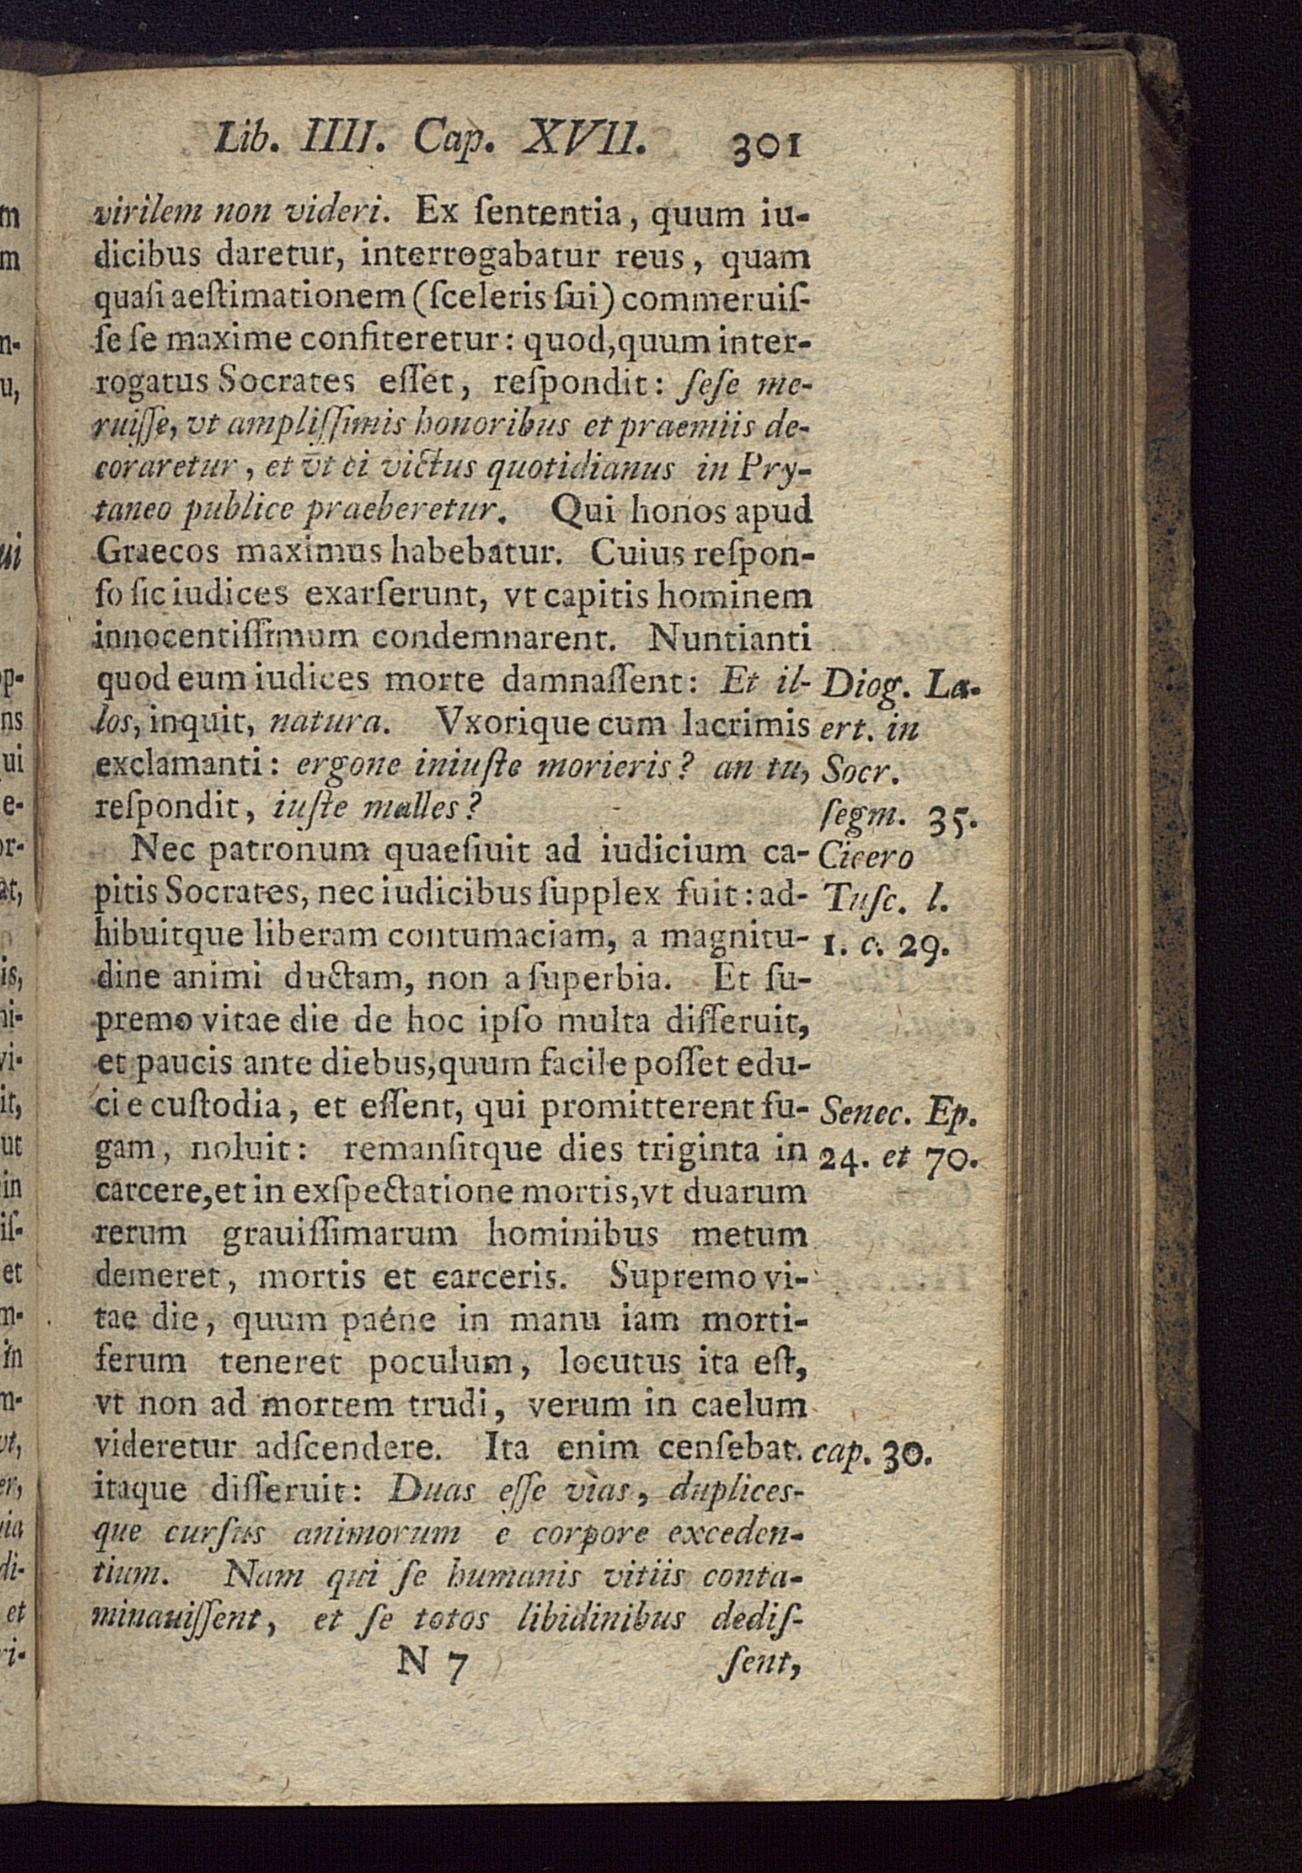 Lib. IIII. Cap. XVII. 301
virilem non videri. Ex ſententia, quum iu-
dicibus daretur, interrogabatur reus, quam
quaſi aeſtimationem (ſceleris ſui) commeruiſ-
ſe ſe maxime confiteretur: quod, quum inter-
rogatus Socrates eſſet, reſpondit: ſeſe me-
ruiſſe, vt ampliſſimis honoribus et praemiis de-
coraretur, et vt ei victus quotidianus in Pry-
taneo publice praeberetur. Qui honos apud
Graecos maximus habebatur. Cuius reſpon-
ſo ſic iudices exarſerunt, vt capitis hominem
innocentiſſimum condemnarent. Nuntianti
quod eum iudices morte damnaſſent: Et il-
los, inquit, natura. Vxorique cum lacrimis
exclamanti: ergone iniuſte morieris? an tu,
reſpondit, iuſte malles?
Diog. La-
ert. in
Socr.
ſegm. 35.
Nec patronum quaeſiuit ad iudicium ca-
pitis Socrates, nec iudicibus ſupplex fuit: ad-
hibuitque liberam contumaciam, a magnitu-
dine animi ductam, non a ſuperbia. Et ſu-
premo vitae die de hoc ipſo multa diſſeruit,
et paucis ante diebus, quum facile poſſet edu-
ci e cuſtodia, et eſſent, qui promitterent fu-
gam, noluit: remanſitque dies triginta in
carcere, et in exſpectatione mortis, vt duarum
rerum grauiſſimarum hominibus metum
demeret, mortis et carceris. Supremo vi-
tae die, quum paéne in manu iam morti-
ferum teneret poculum, locutus ita eſt,
vt non ad mortem trudi, verum in caelum
videretur adſcendere. Ita enim cenſebat.
itaque diſſeruit: Duas eſſe vìas, duplices-
que curſus animorum e corpore exceden-
tium. Nam qui ſe humanis vitiis conta-
minauiſſent, et ſe totos libidinibus dediſ-
Cicero
Tuſc. l.
1. c. 29.
Senec. Ep.
24. et 70.
cap. 30.
N 7 ſent,